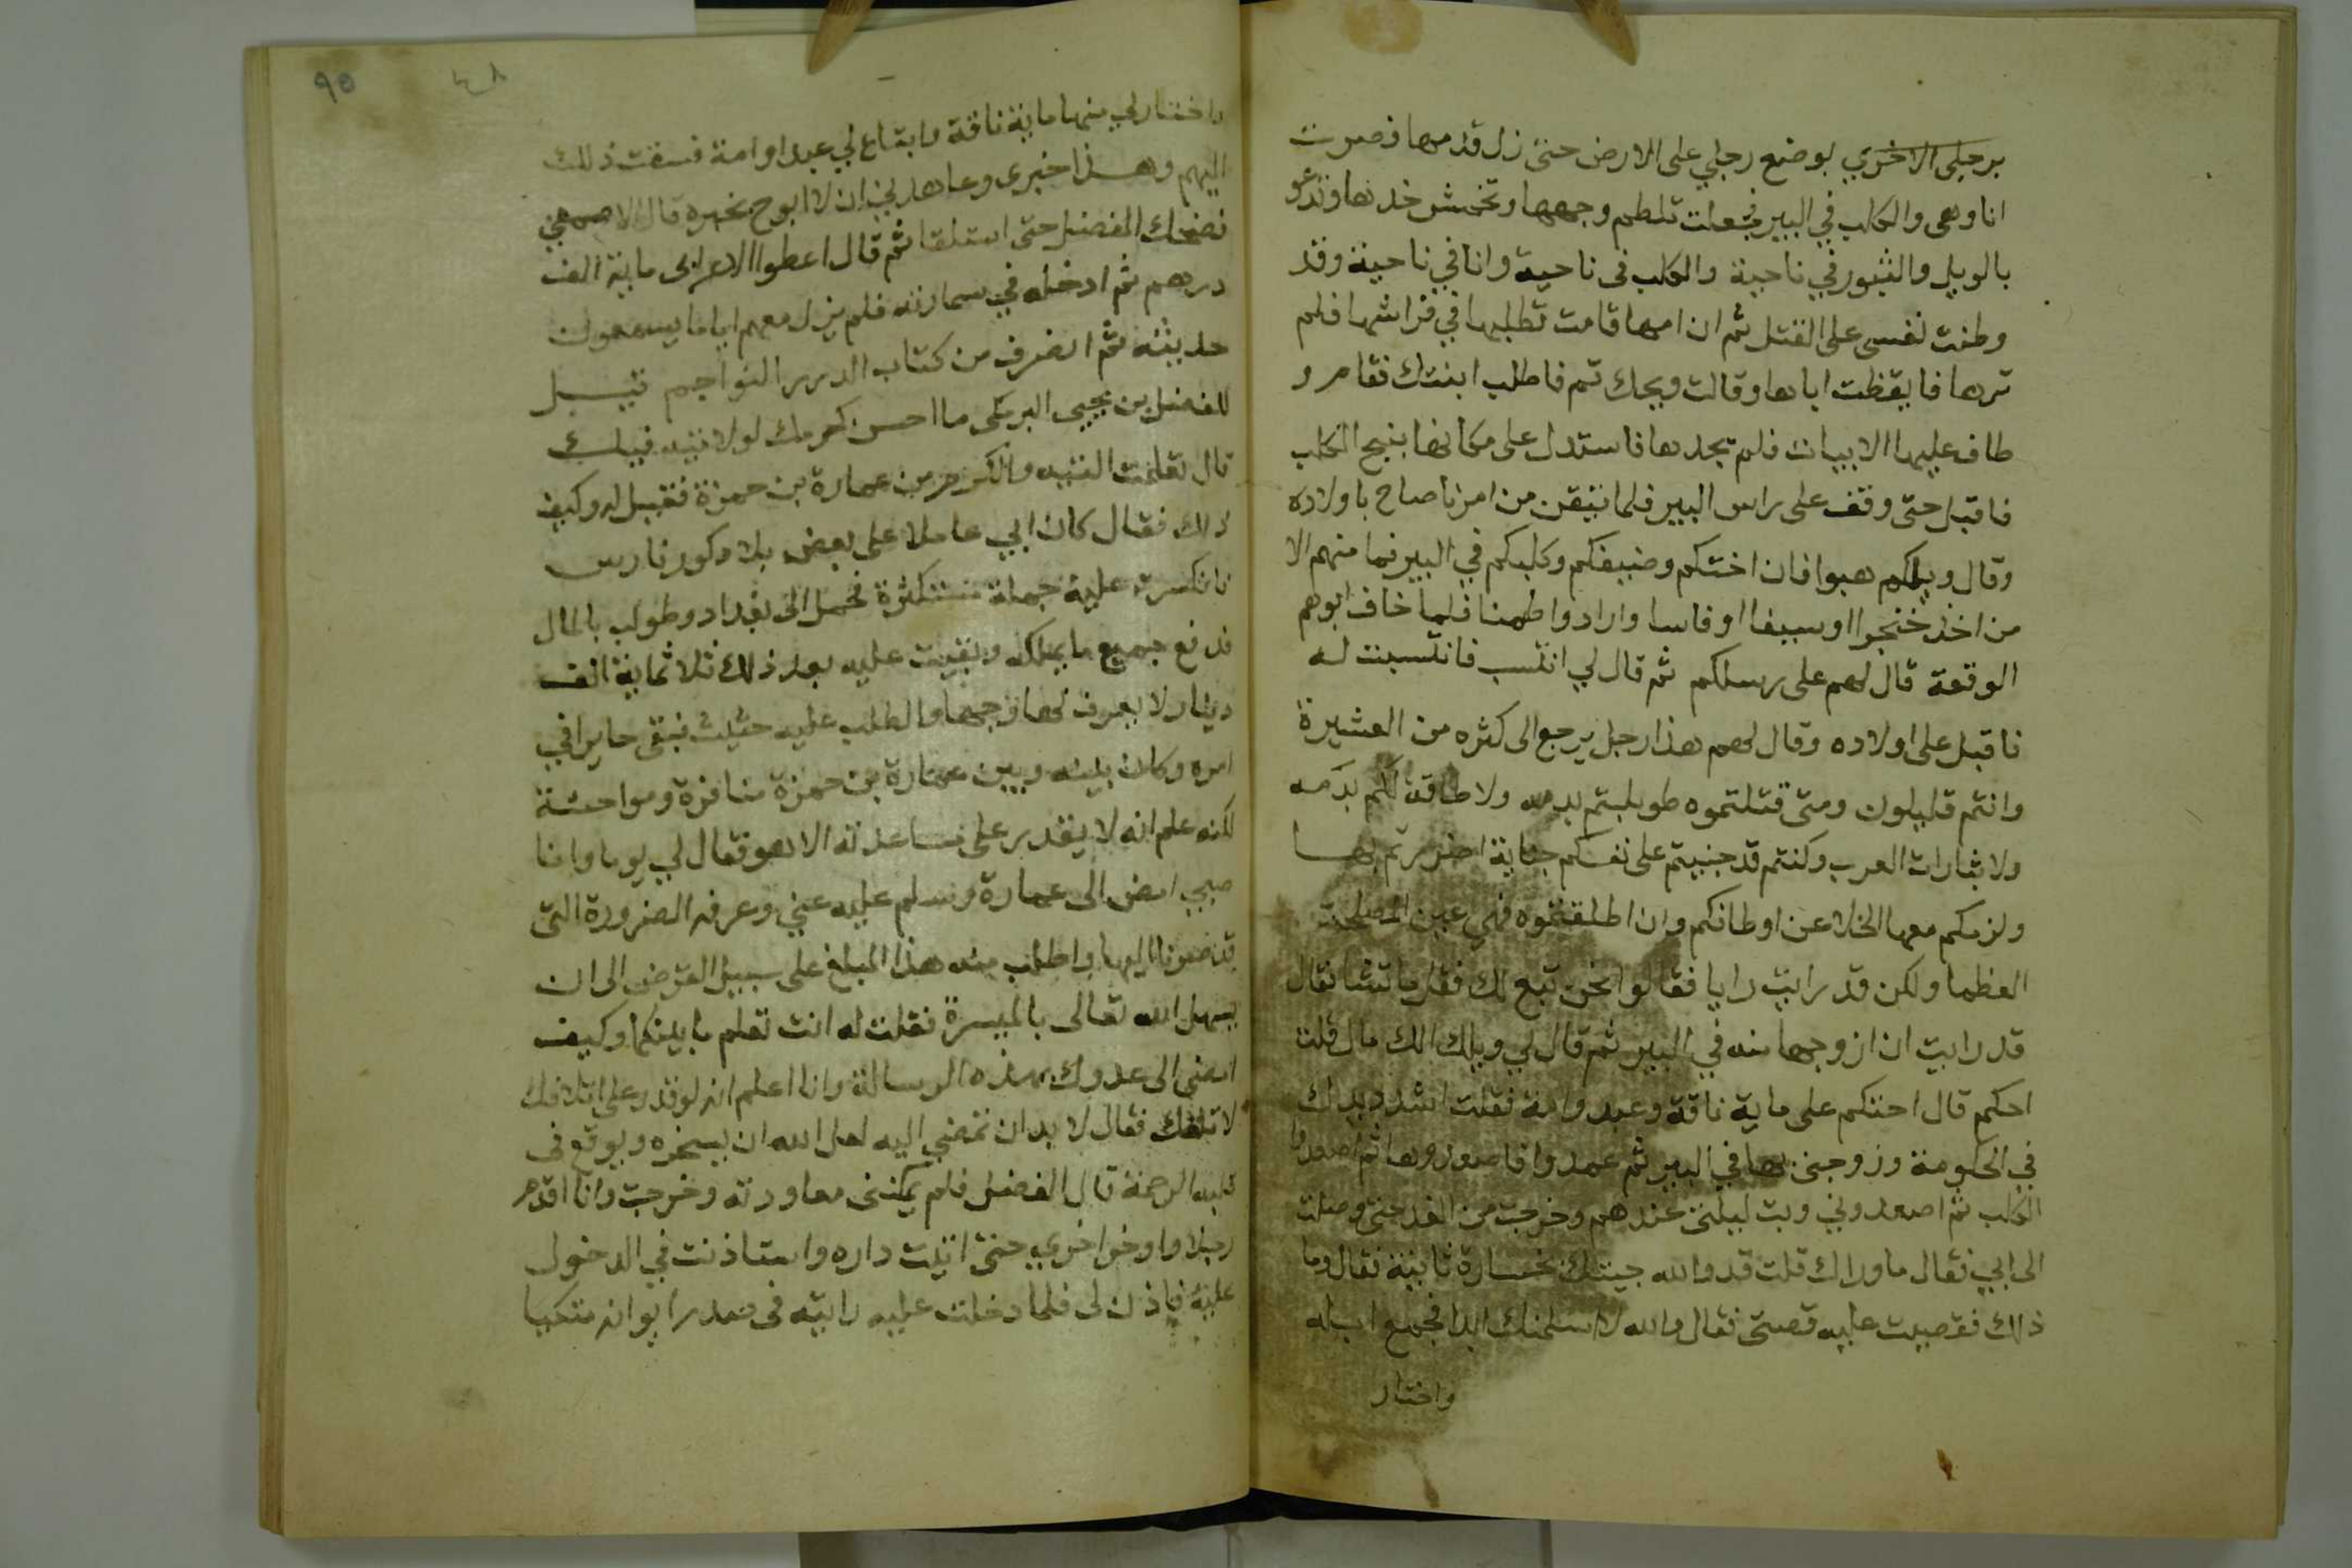 برجلى الاخري لوضع رجلي على الارض حتى زل قدمها فصرت
انا وهى والكلب في البير فجعلت تلطم وجهها وتخمش خدها وتدعو
بالويل والثبور في ناحية والكلب فى ناحية وانا في ناحية وقد
وطنت نفسى على القتل ثم ان امها قامت تطلبها في فراشها فلم
ترها فايقظت اباها وقالت ويحك قم فاطلب ابنتك فقام و
طاف عليها الابيات فلم يجدها فاستدل على مكانها بنبح الكلب
فاقبل حتى وقف على راس البير فلما تيقن من امرنا صاح باولاده
وقال ويلكم هبوا فان اختكم وضيفكم وكلبكم في البير فما منهم الا
من اخذ خنجرا او سيفا او فاسا وارادوا طمنا فلما خاف ابوهم
الوقعة قال لهم على رسلكم ثم قال لي انتسب فانتسبت له
فاقبل على اولاده وقال لهم هذا رجل يرجع الى كثره من العشيرة
وانتم قليلون ومتى قتلتموه طولبتم بدمه ولا طاقة لكم بدمه
ولا بثارات العرب وكنتم قد جنيتم على نفسكم جناية اضررتم بها
ولزمكم معها الخلا عن اوطانكم وان اطلقتموه فهي عين المصلحة
العظما ولكن قد رايت رايا فقالوا نحن تبع لك فقل ما تشا فقال
قد رايت ان ازوجها منه في البير ثم قال لي ويلك الك مال قلت
احكم قال احتكم على ماية ناقة وعبد وامة فقلت اشدد يداك
في الحكومة وزوجنى بها في البير ثم عمدوا فاصعدوها ثم اصعدوا
الكلب ثم اصعدوني وبت ليلتى عندهم وخرجت من الغد حتى وصلت
الى ابي فقال ما وراك قلت قد والله جيتك بخسارة ثانية فقال وما
ذلك فقصيت عليه قصتى فقال والله لا اسلمنك ابدا فجمع ابله
واختار
واختار لي منها ماية ناقة وابتاع لي عبدا وامة فسقت ذلك
اليهم وهذا خبرى وعاهدني ان لا ابوح بخبره قال الاصمعي
فضحك الفضل حتى استلقا ثم قال اعطوا الاعرابى ماية الف
درهم ثم ادخله في سمارته فلم يزل معهم اياما يسمعون
حديثه ثم انصرف من كتاب الدرر النواجم قيل
للفضل بن يحيى البرمكى ما احسن كرمك لولا تيه فيك
قال تعلمت التيه والكرم من عمارة بن حمزة فقيل له وكيف
ذلك فقال كان ابي عاملا على بعض بلاد كور فارس
فانكسرت عليه جملة مستكثرة فحمل الى بغداد وطولب بالمال
فدفع جميع ما يملكه وبقيت عليه بعد ذلك ثلاثماية الف
دينار لا يعرف لها وجها والطلب عليه حثيث فبقى حايرا في
امره وكان بينه وبين عمارة بن حمزة منافرة ومواحشة
لكنه علم انه لا يقدر على مساعدته الا هو فقال لي يوما وانا
صبي امض الى عمارة وسلم عليه عني وعرفه الضرورة التى
قد صرنا اليها واطلب منه هذا المبلغ على سبيل القرض الى ان
يسهل الله تعالى بالميسرة فقلت له انت تعلم ما بينكما وكيف
امضى الى عدوك بهذه الرسالة وانا اعلم انه لو قدر على اتلافك
لاتلفك فقال لا بد ان تمضي اليه لعل الله ان يسخره ويوقع فى
قلبه الرحمة قال الفضل فلم يمكننى معاودته وخرجت وانا اقدم
رجلا واوخر اخري حتى اتيت داره واستاذنت في الدخول
عليه فاذن لى فلما دخلت عليه رايته فى صدر ايوانه متكيا
٩٥
٤٨